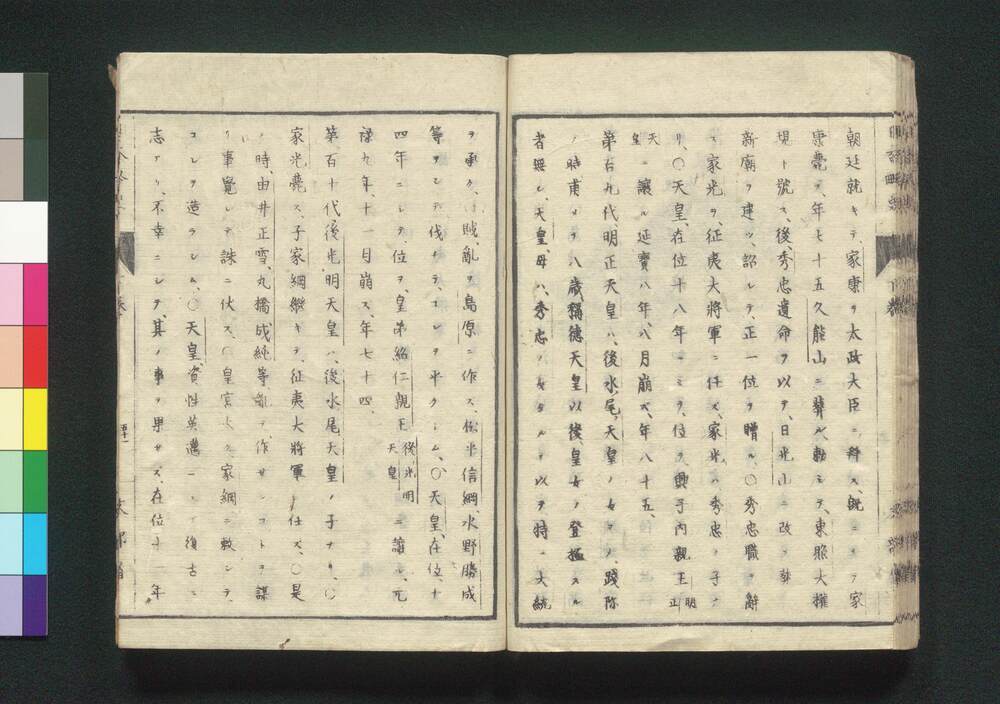 朝廷就キテ、家康ヲ太政大臣ニ、拜ス、既ニシテ家
康薨ス、年七十五久能山ニ葬ル、勅シテ、東照大權
現ト號ス、後、秀忠遺命ヲ以テ、日光山ニ改メ葬
新廟ヲ建ツ、詔シテ、正一位ヲ贈ル、〇秀忠職ヲ辭
ス家光ヲ、征夷大將軍ニ任ズ、家光ハ秀忠ノ子ナ
リ、〇天皇、在位十八年ニシテ、位ヲ、興子内親王明正
天皇ニ讓ル延寶八年、八月崩ズ、年八十五、
第百九代明正天皇ハ、後水尾天皇ノ女ナリ、踐祚
ノ時甫メテ八歳稱德天皇以後、皇女ノ登極スル
者無シ、天皇、母ハ、秀忠ノ女タルヲ以テ、特ニ大統
ヲ承ク、賊、亂ヲ島原ニ作ス、松平信綱、水野勝成
等ヲシテ伐チテ、コレヲ平ケシム、〇天皇、在位、十
四年ニシテ、位ヲ、皇弟紹仁親王後光明天皇ニ讓ル、元
祿九年、十一月崩ス、年七十四、
第百十代後光明天皇ハ、後水尾天皇ノ子ナリ、〇
家光薨ス、子家綱繼キテ、征夷大將軍ニ任ズ、〇是
ノ時、由井正雪、丸橋忠純等亂ヲ作サンコトヲ謀
リ事覺レテ誅ニ伏ス、〇皇宮火ク、家綱ニ敕シテ、
コレヲ造ラシム、〇天皇、資性英邁ニシテ復古ニ
志アリ、不幸ニシテ、其ノ事ヲ果サズ、在位十一年